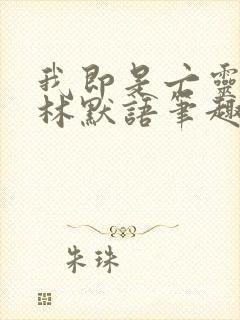 我即是言靈
林默語筆趣
朱珠